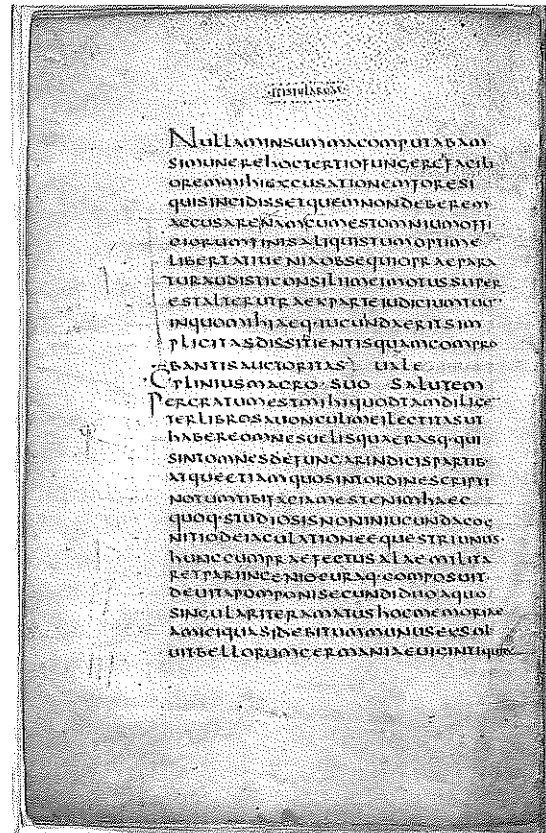 ·EPISTULARUM·
NULLAMINSUMMACOMPUTABAM
SIMUNEREHOCTERTIOFUNGERERFACILI
OREMMIHIEXCUSATIONEMFORESI
QUISINCIDISSETQUEMNONDEBEREM
ACCUSARENAMCUMESTOMNIUMOFFI
CIORUMFINISALIQUISTUMOPTIME
LIBERTATIUENIAOBSEQUIOPRAEPARA
TURAUDISTICONSILIIMEIMOTUSSUPER
ESTALTERUTRAEXPARTEIUDICIUMTUU
INQUOMIHIAEQ·IUCUNDAERITSIM
PLICITASDISSITIENTISQUAMCOMPRO
BANTISAUCTORITAS UALE
C·PLINIUSMACRO·SUO SALUTEM
PERGRATUMESTMIHIQUODTAMDILIGEN
TERLIBROSAUONCULIMEILECTITASUT
HABEREOMNESUELISQUAERASQ·QUI
SINTOMNESDEFUNGARINDICISPARTIB·
ATQUEETIAMQUOSINTORDINESCRIPTI
NOTUMTIBIFACIAMESTENIMHAEC
QUOQ·STUDIOSISNONINIUCUNDACOG
NITIODEIACULATIONEEQUESTRIUNUS·
HUNCCUMPRAEFECTUSALAEMILITA
RETPARIINGENIOCURAQ·COMPOSUIT·
DEUITAPOMPONISECUNDIDUOAQUO
SINGULARITERAMATUSHOCMEMORIAE
AMICIQUASIDEBITUMMUNUSEXSOL
UITBELLORUMGERMANIAEUIGINTIQUIB·